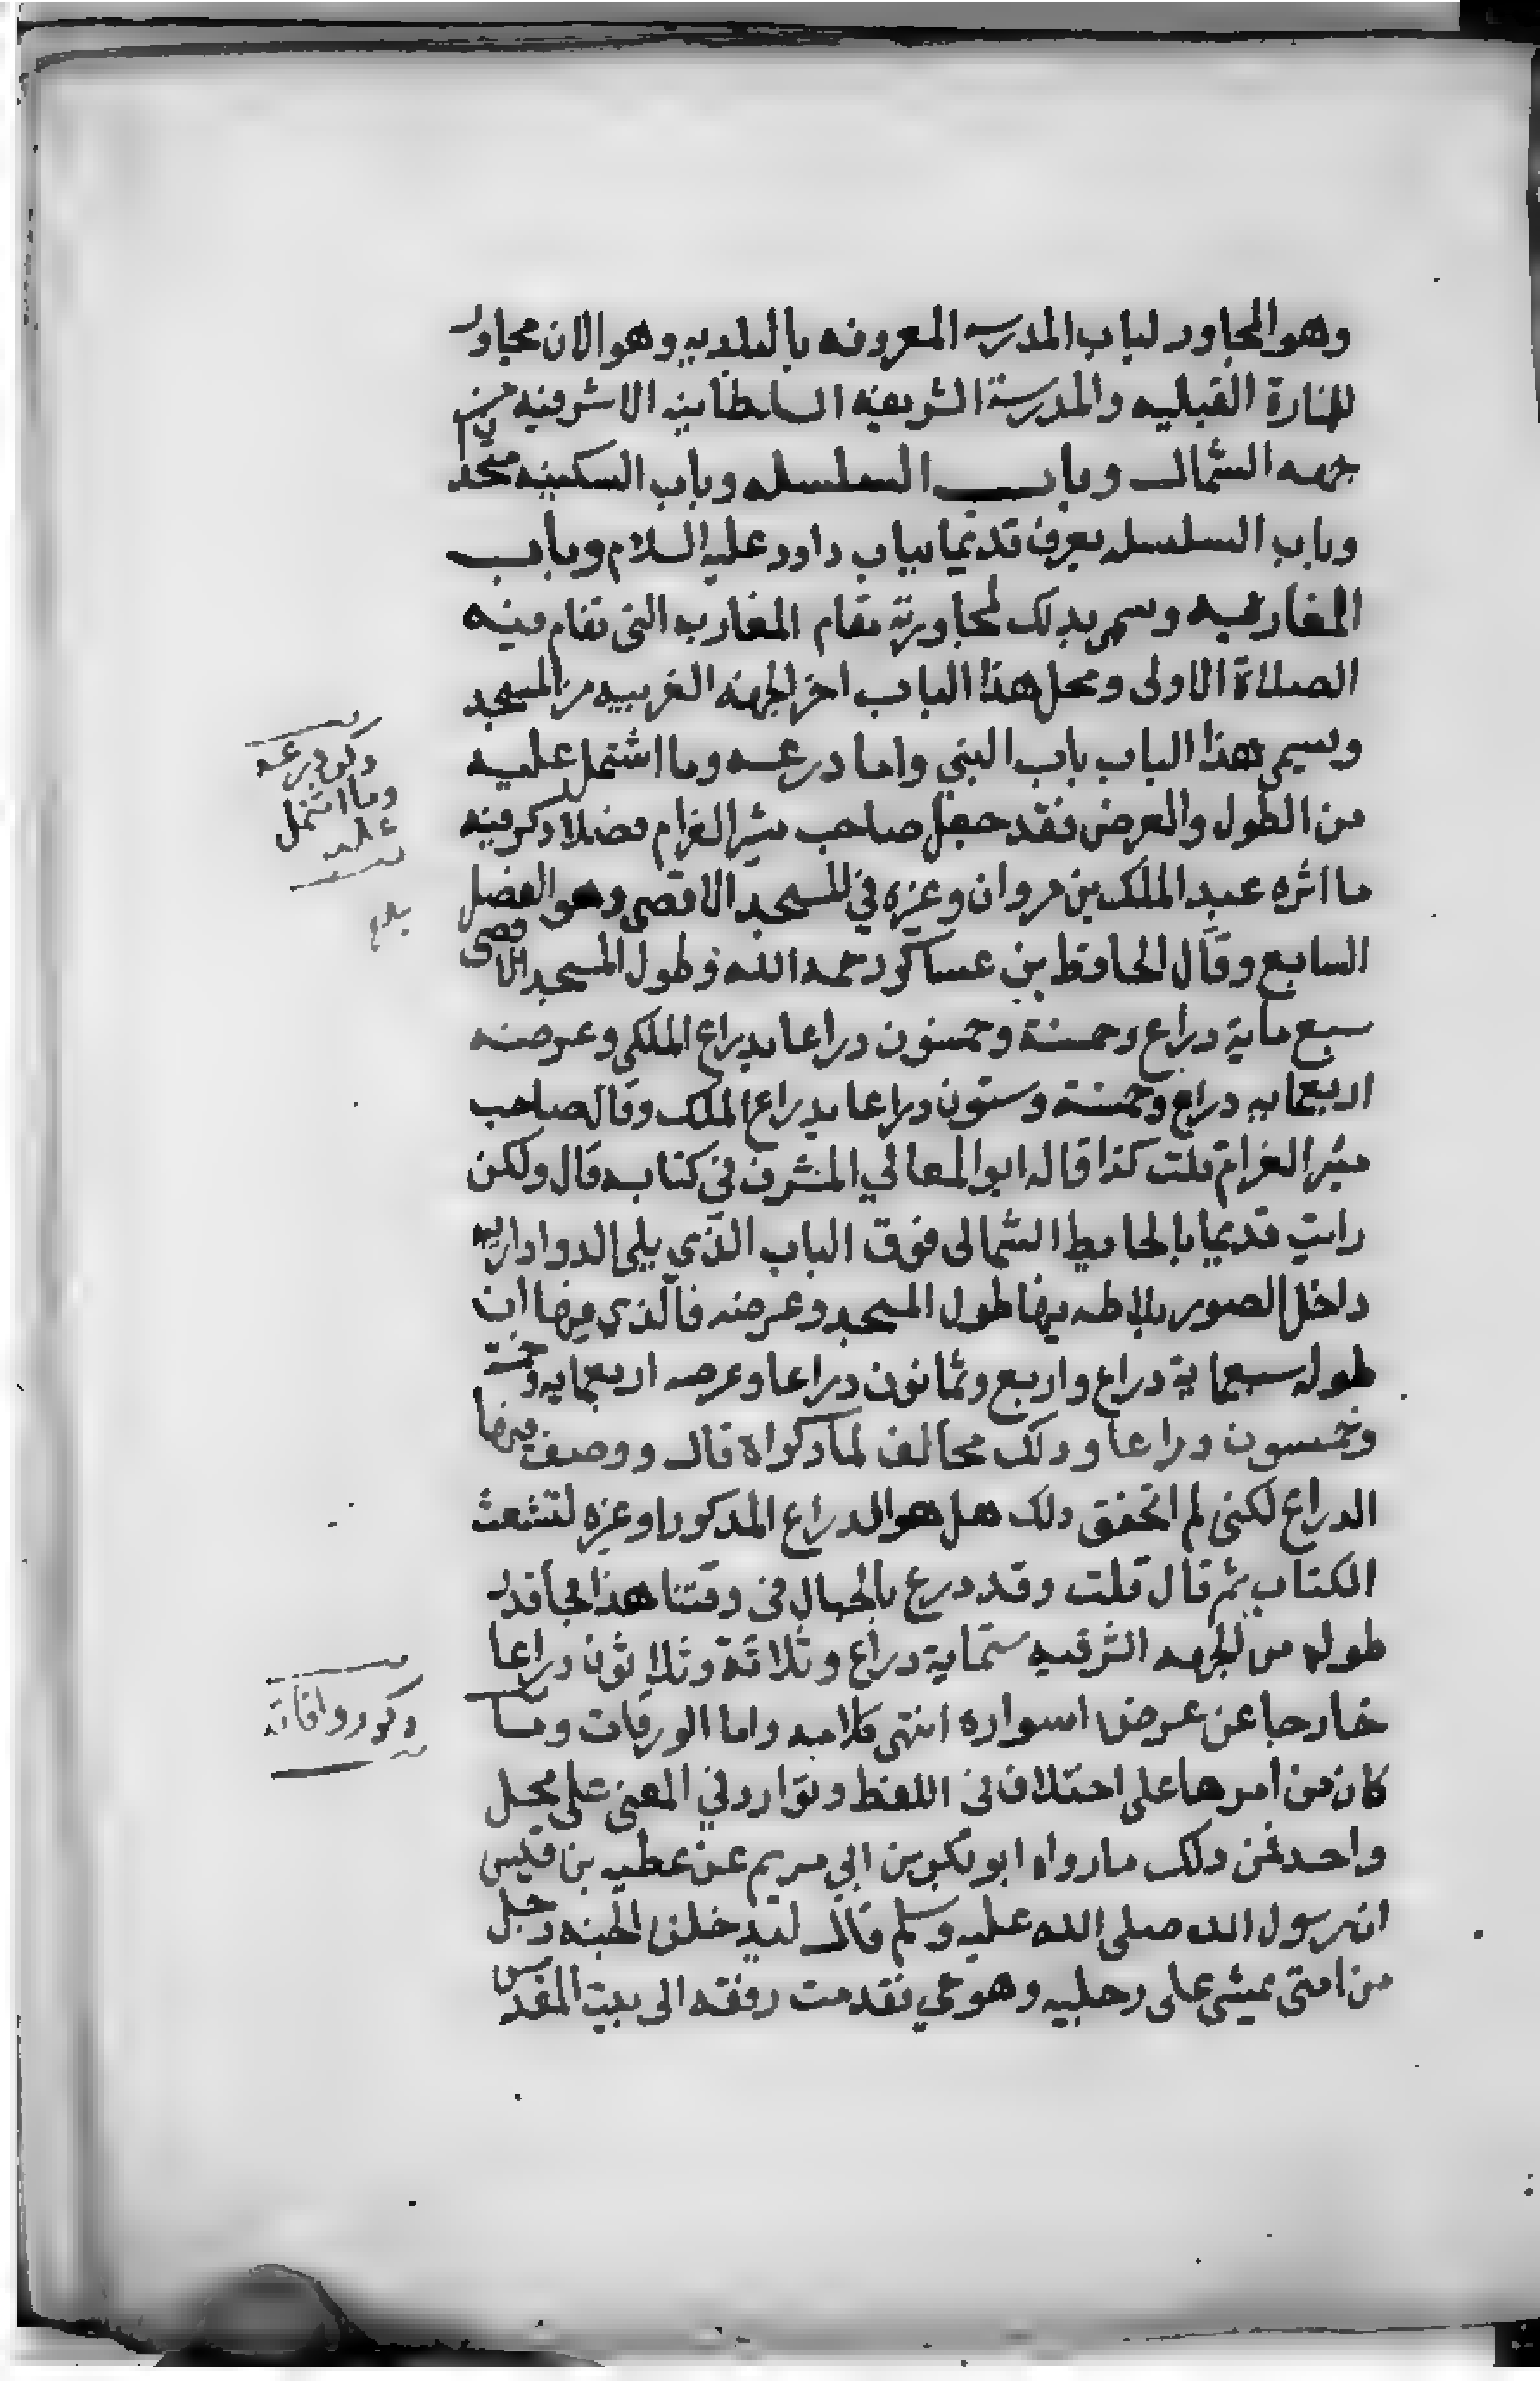 وهو المجاور لباب المدرسه المعروفه بالبلديه وهو الان مجاور
للمنارة القبليه والمدرسة الشريفه السلطانيه الاشرفيه من
جهه الشمال وباب السلسله وباب السكينه متحدان
وباب السلسله يعرف قديما بباب داود عليه السلام وباب
المغاربه وسمي بدلك لمجاورته مقام المغاربه التى تقام فيه
الصلاة الاولى ومحل هذا الباب اخر الجهه الغربيه من المسجد
ويسمي هذا الباب باب النبي واما درعه وما اشتمل عليه
من الطول والعرض فقد جعل صاحب مثير الغرام فصلا دكر فيه
ما اثره عبد الملك بن مروان وغيره في المسجد الاقصى وهو الفصل
السابع وقال الحافظ بن عساكر رحمه الله وطول المسجد الاقصى
سبع ماية دراع وخمسة وخمسون دراعا بدراع الملكى وعرضه
اربعمايه دراع وخمسة وستون دراعا بدراع الملك وقال صاحب
مثير الغرام قلت كذا قاله ابو المعالي المشرف في كتابه قال ولكن
رايت قديما بالحايط الشمالى فوق الباب الذي يلى الدواداريه
داخل الصور بلاطه فيها طول المسجد وعرضه فالذي فيها ان
طوله سبعماية دراع واربع وثمانون دراعا وعرضه اربعمايه وخمسة
وخمسون دراعا ودلك مخالف لما دكراه قال ووصف فيها
الدراع لكنى لم اتحقق دلك هل هو الدراع المدكور او غيره لتشعث
الكتاب ثم قال قلت وقد درع بالحبال فى وقتنا هذا فجا قدر
طوله من الجهه الشرقيه ستماية دراع وثلاثة وثلاثون دراعا
خارجا عن عرض اسواره انتهى كلامه واما الورقات وما
كان من امرها على اختلاف فى اللفظ وتوارد في المعنى على محل
واحد فمن دلك ما رواه ابو بكر بن ابي مريم عن عطيه بن قيس
ان رسول الله صلى الله عليه وسلم قال ليدخلن الجنه رجل
من امتى يمشي على رجليه وهو حي فقدمت رفقه الى بيت المقدس
دكر درعه
وما اشتمل
عليه
بلغ
دكر ورقاته